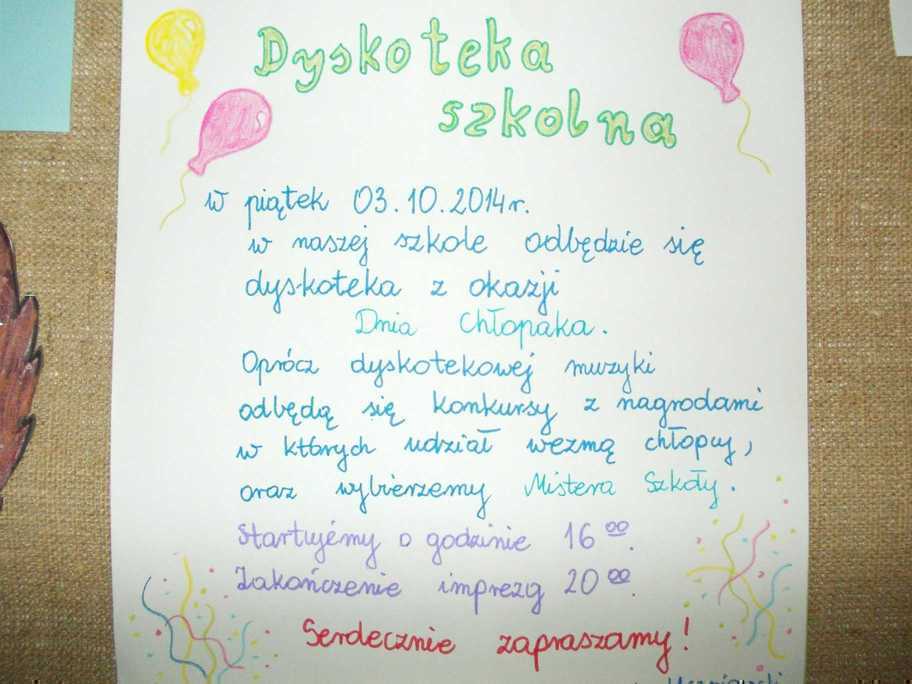 Dyskoteka
szkolna
w piątek 03.10.2014r.
w naszej szkole odbędzie się
dyskoteka z okazji
Dnia Chłopaka.
Oprócz dyskotekowej muzyki
odbędą się konkursy z nagrodami
w których udział wezmą chłopcy,
oraz wybierzemy Mistera Szkoły.
Startujemy o godzinie 16 00.
Zakończenie imprezy 20 00.
Serdecznie zapraszamy!